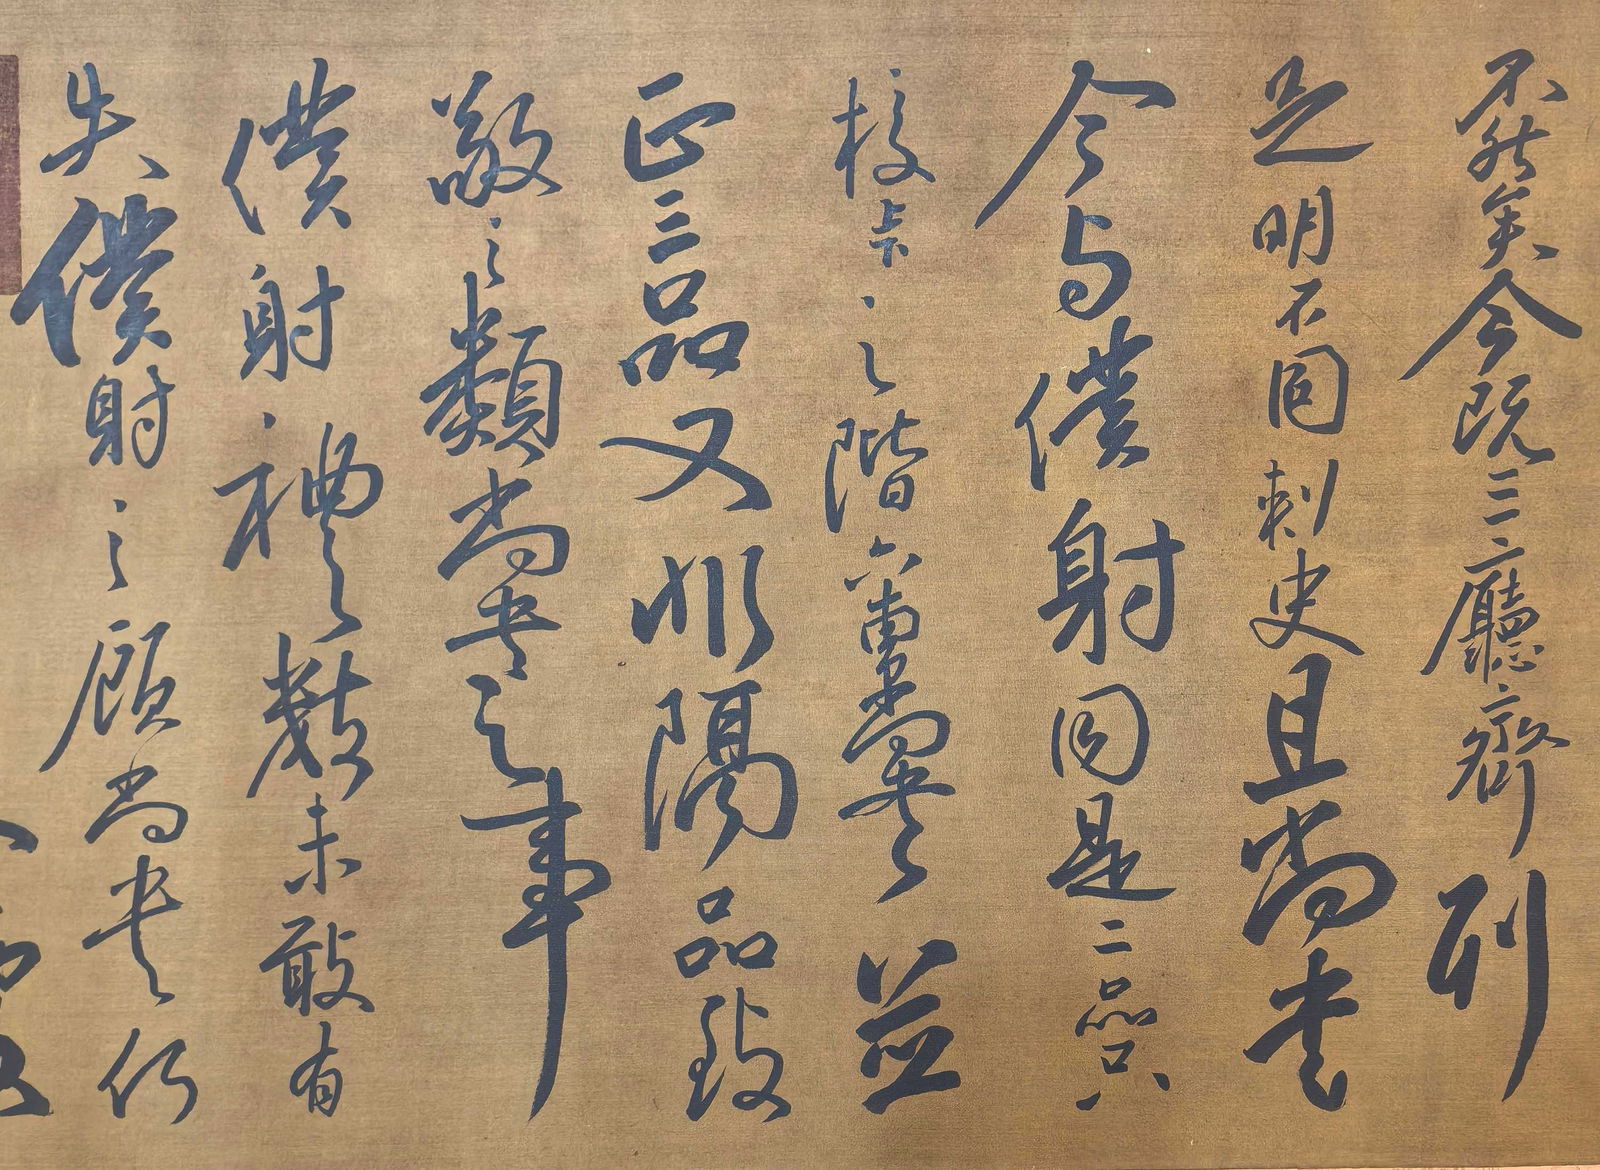 不然矣今既三廳齊列
足明不同刺史且尚書
令与僕射同是二品只
校上下之階六曹尚書並
正三品又非隔品致
敬之類尚書之事
僕射禮數未敢有
失僕射之顧尚書仍